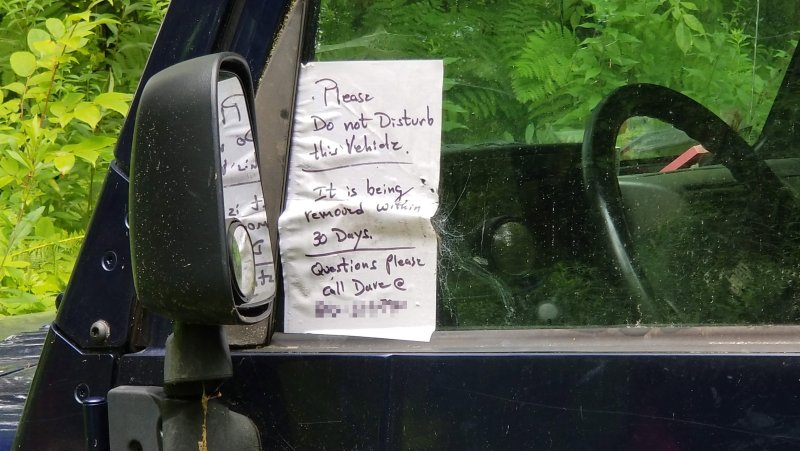 Please
Do not Disturb
this Vehicle.
It is being
removed within
30 Days.
Questions please
call Dave @